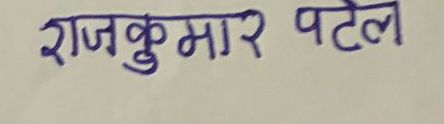 राजकुमार पटेल